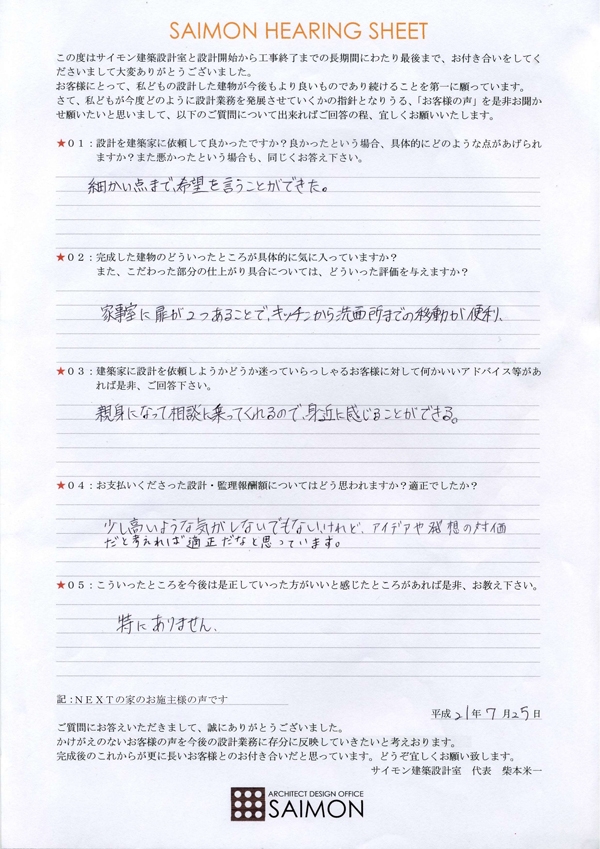 SAIMON HEARING SHEET
この度はサイモン建築設計室と設計開始から工事終了までの長期間にわたり最後まで、お付き合いをしてく
ださいまして大変ありがとうございました。
お客様にとって、私どもの設計した建物が今後もより良いものであり続けることを第一に願っています。
さて、私どもが今度どのように設計業務を発展させていくかの指針となりうる、「お客様の声」を是非お聞か
せ願いたいと思いまして、以下のご質問について出来ればご回答の程、宜しくお願いいたします。
★０１：設計を建築家に依頼して良かったですか？良かったという場合、具体的にどのような点があげられ
ますか？また悪かったという場合も、同じくお答え下さい。
細かい点まで、希望を言うことができた。
★０２：完成した建物のどういったところが具体的に気に入っていますか？
また、こだわった部分の仕上がり具合については、どういった評価を与えますか？
家事室に扉が２つあることで、キッチンから洗面所までの移動が便利、
★０３：建築家に設計を依頼しようかどうか迷っていらっしゃるお客様に対して何かいいアドバイス等があ
れば是非、ご回答下さい。
親身になって相談に乗ってくれるので、身近に感じることができる。
★０４：お支払いくださった設計・監理報酬額についてはどう思われますか？適正でしたか？
少し高いような気がしないでもないけれど、アイデアや発想の対価
だと考えれば適正だなと思っています。
★０５：こういったところを今後は是正していった方がいいと感じたところがあれば是非、お教え下さい。
特にありません、
記：ＮＥＸＴの家のお施主様の声です
平成 21年 7 月 25日
ご質問にお答えいただきまして、誠にありがとうございました。
かけがえのないお客様の声を今後の設計業務に存分に反映していきたいと考えおります。
完成後のこれからが更に長いお客様とのお付き合いだと思っています。どうぞ宜しくお願い致します。
サイモン建築設計室　代表　柴本米一
ARCHITECT DESIGN OFFICE
SAIMON